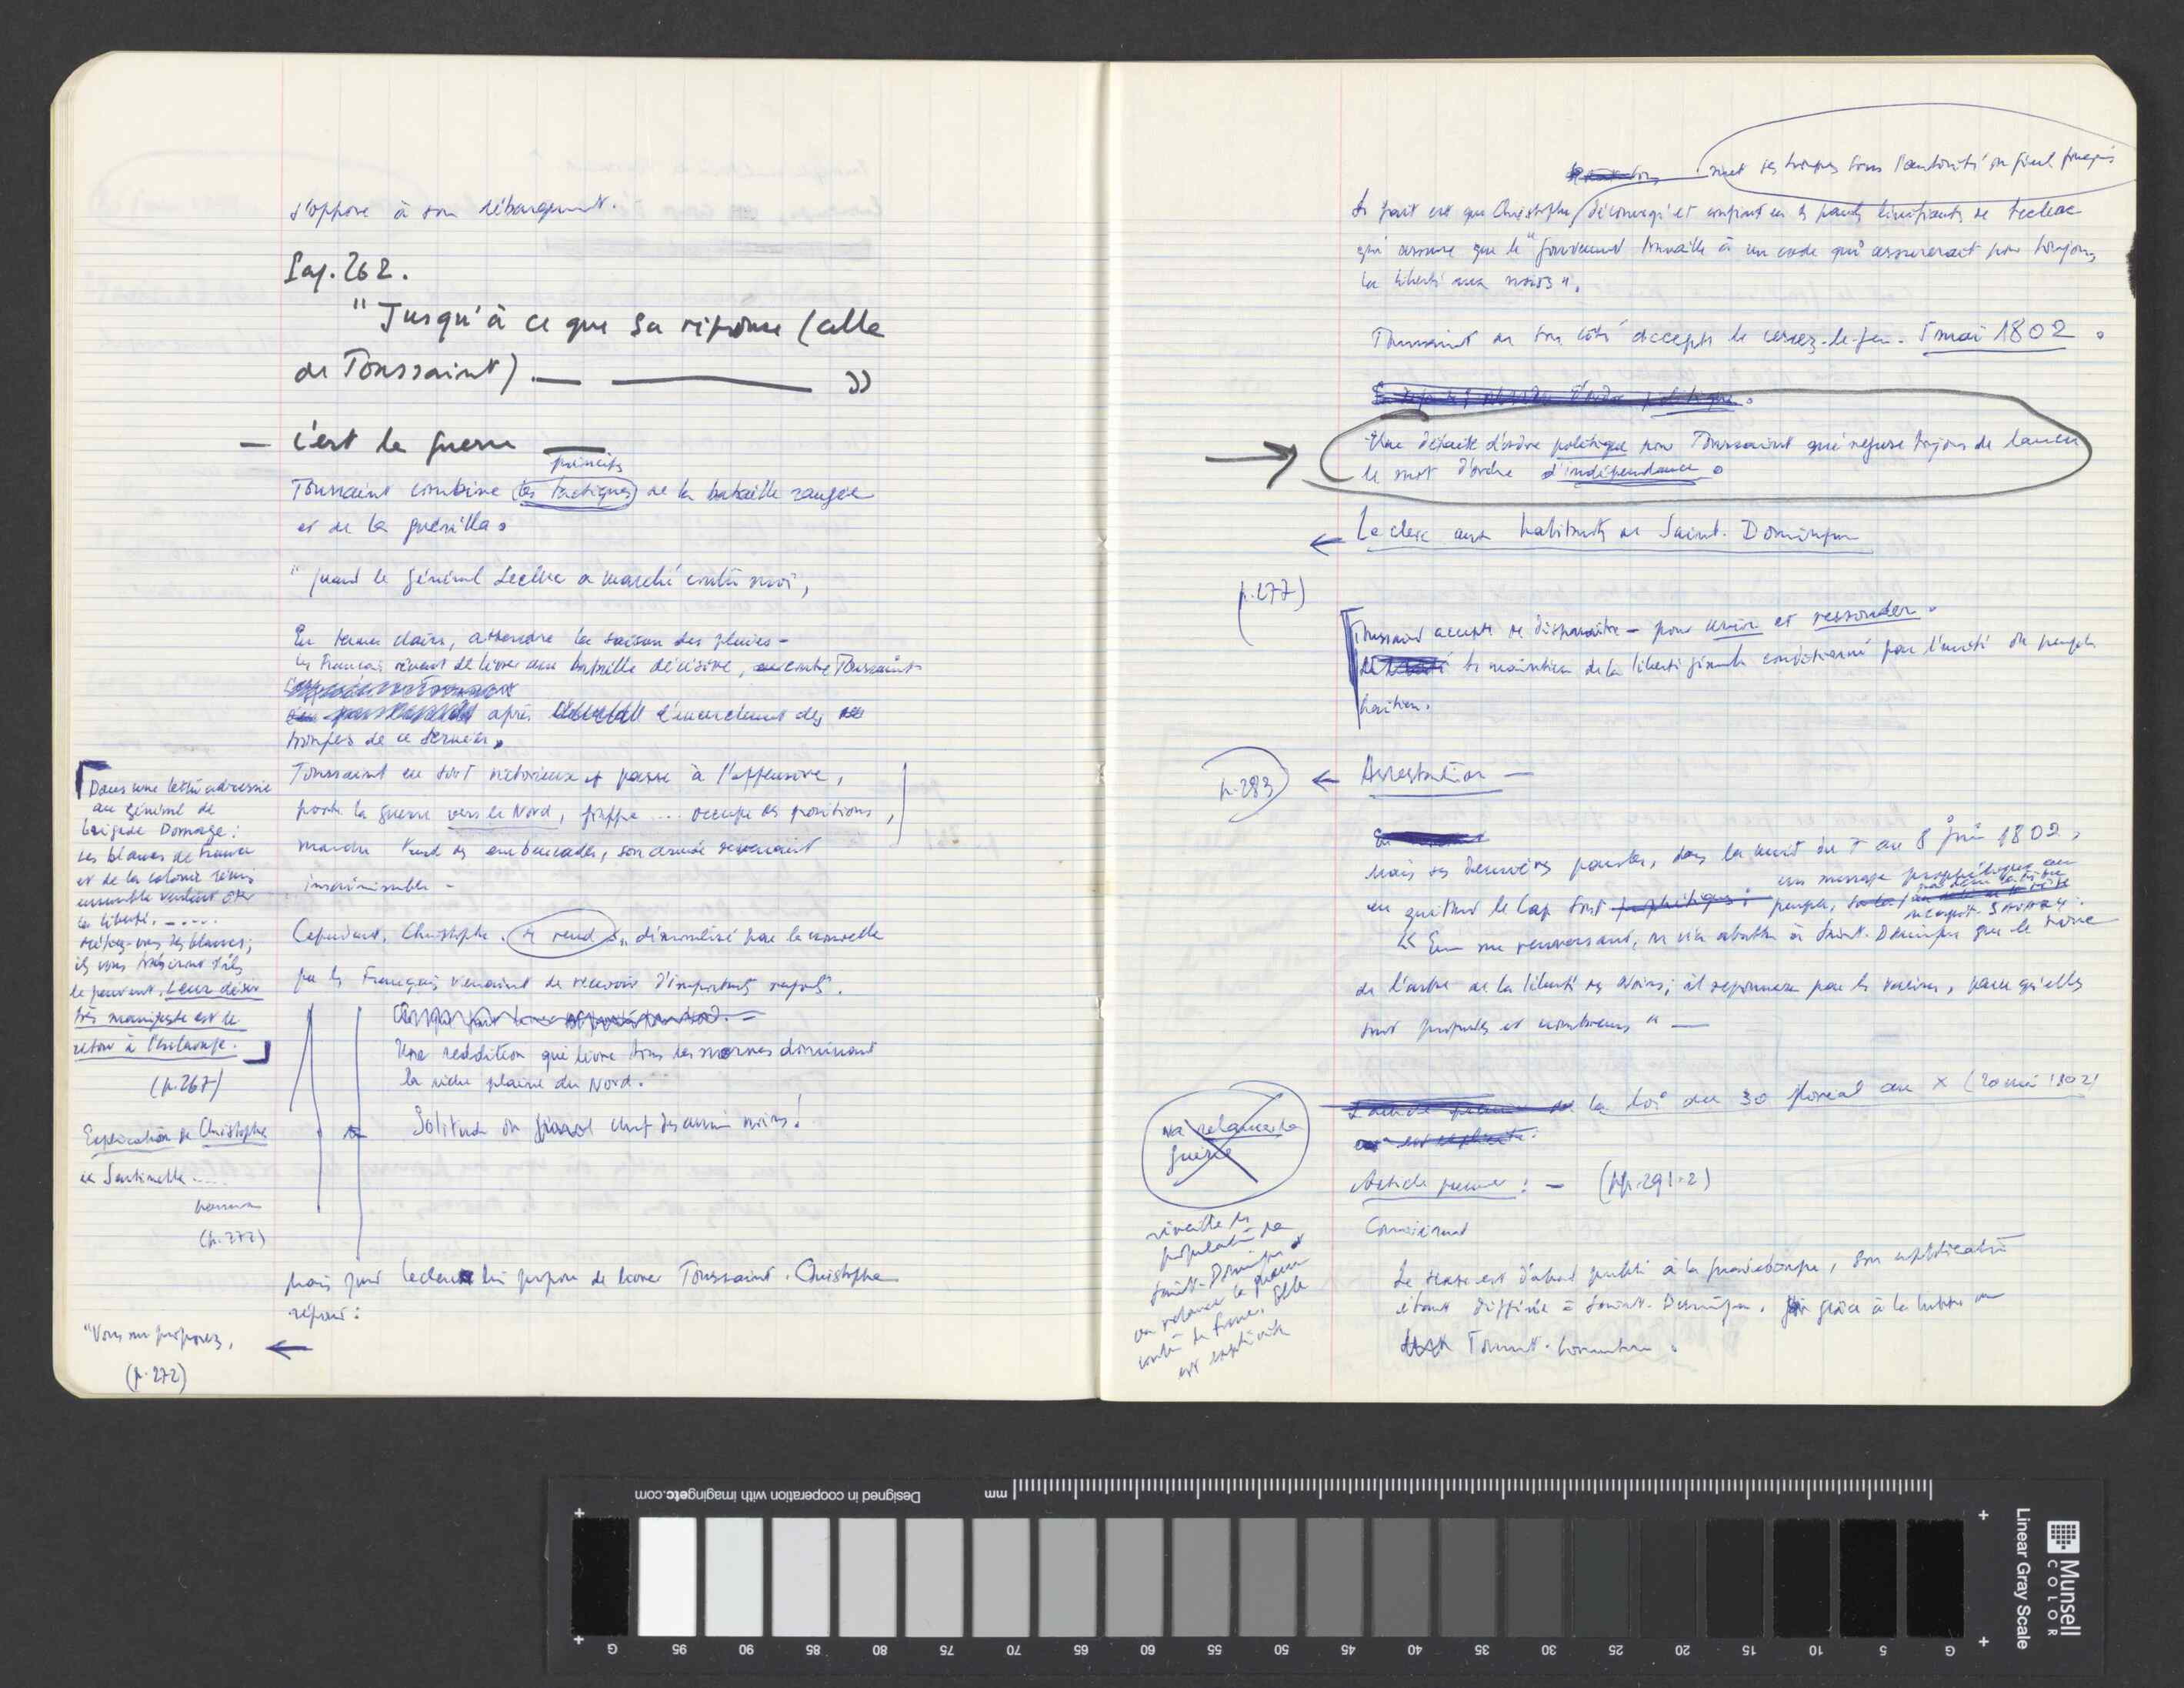 s'oppose à son débarquement.
Pag. 262.
"Jusqu'à ce que sa réponse (celle
de Toussaint) — — »
— c'est la guerre —
principes
Toussaint combine les tactiques de la bataille rangée
et de la guérilla.
" quand le général Leclerc a marché contre moi,
En termes clairs, attendre la saison des pluies —
les Français rêvent de livrer une bataille décisive, contre Toussaint
après l'encerclement des
troupes de ce dernier.
Toussaint en sort victorieux et passe à l'offensive,
porte la guerre vers le Nord, frappe ... occupe des positions,
marche tend des embuscades, son armée devenait
insaisissable —
Cependant, Christophe se rend démoralisé par la nouvelle
que les Français venaient de recevoir d'importants renforts.
Une reddition qui livre tous les mornes dominant
la riche plaine du Nord.
Solitude du grand chef des armées noires!
Mais quand Leclerc lui propose de livrer Toussaint. Christophe
répond:
Dans une lettre adressée
au général de
brigade Domage:
les blancs de France
et de la colonie réunis
ensemble veulent ôter
la liberté. -----
méfiez-vous des blancs;
ils vous trahiront s'ils
le peuvent. Leur désir
très manifeste est le
retour à l'esclavage.
(p. 267)
Explication de Christophe
et Sentinelle ....
(p. 272)
"Vous me proposez,
(p. 272)
met ses troupes sous l'autorité du général français
Le fait est que Christophe découragé et confiant en les paroles lénifiantes de Leclerc
qui assure que le "gouvernement travaille à un code qui assurerait pour toujours
la liberté aux noirs".
Toussaint de son côté accepte le cessez-le-feu. 5 mai 1802.
Une défaite d'ordre politique pour Toussaint qui refuse toujours de lancer
le mot d'ordre d'indépendance.
Leclerc aux habitants de Saint-Domingue
(p. 277)
Toussaint accepte de disparaître — pour unir et ressouder.
le maintien de la liberté générale conditionné par l'unité du peuple
haïtien.
p. 283
Arrestation —
Mais ses dernières paroles, dans la nuit du 7 au 8 juin 1802,
un message prophétique au
en quittant le Cap sont prophétiques: peuple,
« En me renversant, on n'a abattu à Saint-Domingue que le tronc
de l'arbre de la liberté des Noirs; il repoussera par les racines, parce qu'elles
sont profondes et nombreuses » —
la loi du 30 floréal an X (20 mai 1802)
est explicite:
Article premier: — (pp. 291-2)
va relancer la
guerre
Le texte est d'abord publié à la Guadeloupe, son application
étant différée à Saint-Domingue, grâce à la lutte de
Toussaint-Louverture.
réveille les
population de
Saint-Domingue et
on relance la guerre
contre la France. Elle
est explicite
Designed in cooperation with imagingetc.com
mm
G 95 90 85 80 75 70 65 60 55 50 45 40 35 30 25 20 15 10 5 G
Munsell
COLOR
Linear Gray Scale